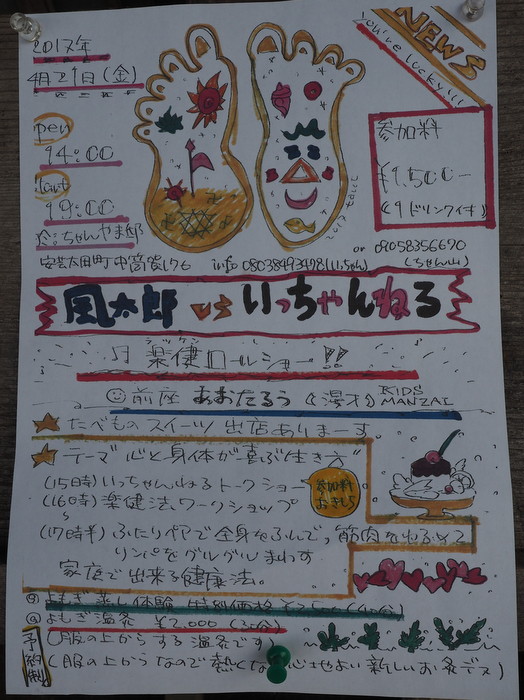 NEWS
you're lucky!!!
2017年
4月29日(金)
open
14:00
last
19:00
参加料
¥1,500-
《1ドリンク付》
2017
安芸太田町中筒賀176 info 08038493478(いっちゃん)
or 09058356670
(ちゃん山)
風太郎 vs いっちゃんねる
♫ 楽健ロールショー!!
ラッケン
前座 あおたろう 《漫才》KIDS MANZAI
★たべもの スイーツ 出店ありまーす。
★テーマ“心と身体が喜ぶ生き方”
(15時)いっちゃんねるトークショー
(16時)楽健法ワークショップ
参加料
(17時半)ふたりペアで全身をふんでっ筋肉をゆるめて
リンパをグルグルまわす
家庭で出来る健康法。
よもぎ蒸し体験 特別価格
よもぎ温灸 ¥2,000(30分)
(服の上からする温灸です)
予約制
(服の上からなので熱くない心地よい新しいお灸デス)